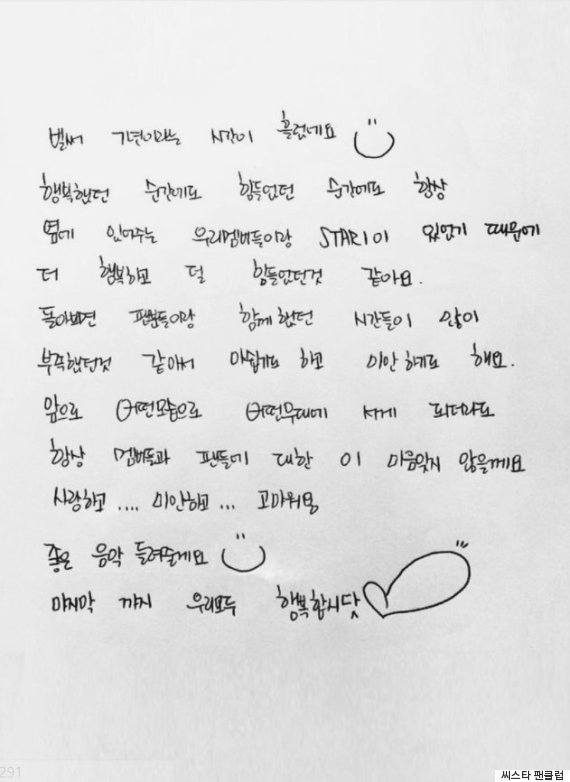 벌써 7년이라는 시간이 흘렀네요
행복했던 순간에도 힘들었던 순간에도 항상
옆에 있어주는 우리멤버들이랑 STAR1이 있었기 때문에
더 행복하고 덜 힘들었던것 같아요.
돌아보면 팬분들이랑 함께 했던 시간들이 많이
부족했던것 같아서 아쉽기도 하고 미안하기도 해요.
앞으로 어떤모습으로 어떤무대에 서게 되더라도
항상 멤버들과 팬들에 대한 이 마음잊지 않을께요
사랑하고 .... 미안하고 ... 고마워용
좋은 음악 들려줄게요
마지막 까지 우리모두 행복합시닷
291
씨스타 팬클럽